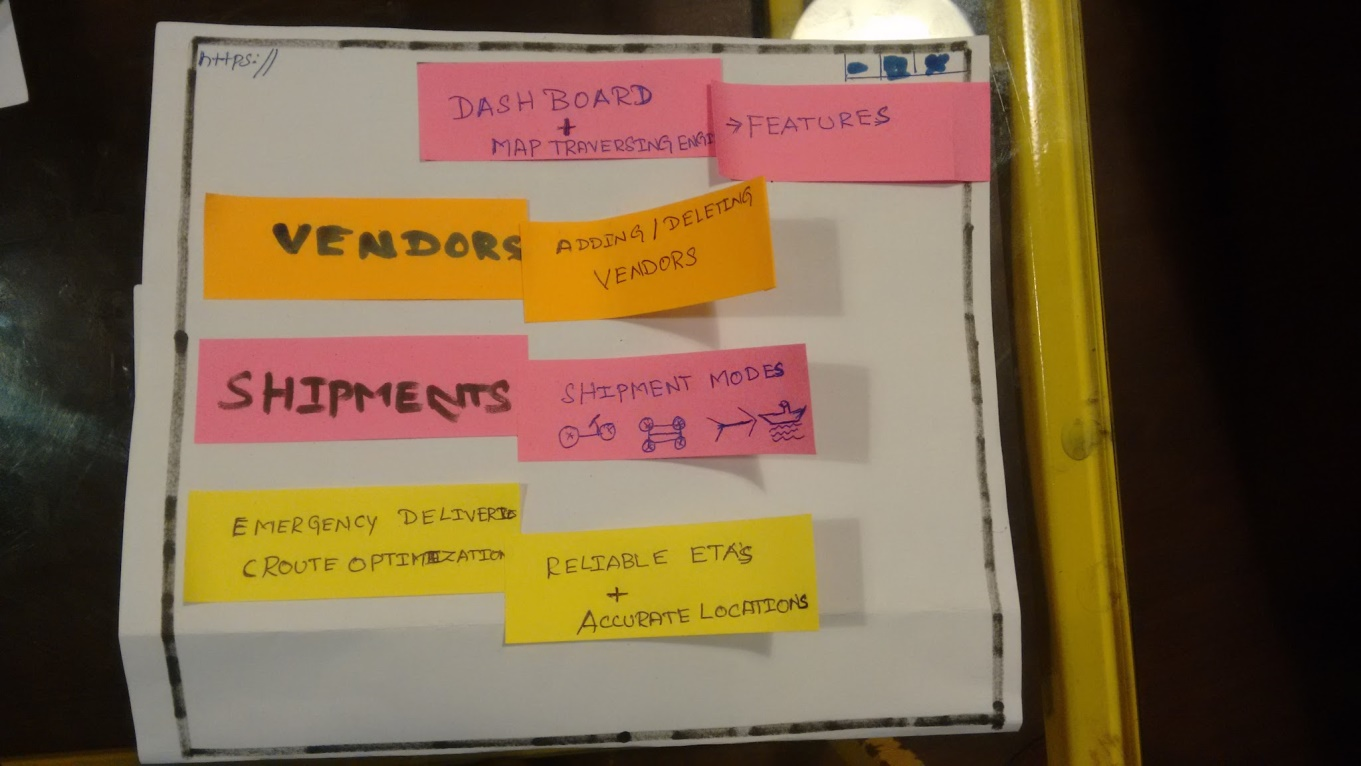 https://
DASHBOARD
+
MAP TRAVERSING ENGI
→FEATURES
VENDORS
ADDING / DELETING
VENDORS
SHIPMENTS
SHIPMENT MODES
EMERGENCY DELIVERIES
(ROUTE OPTIMIZATION
RELIABLE ETA'S
+
ACCURATE LOCATIONS